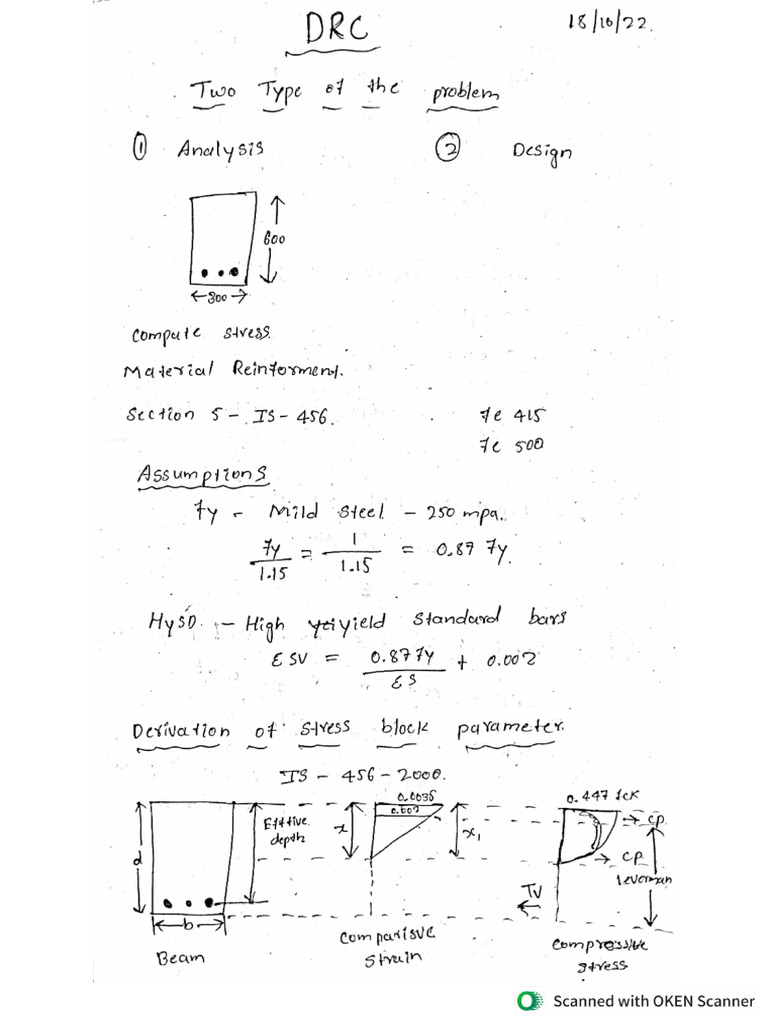 DRC
18/10/22.
Two Type of the problem
① Analysis
② Design
600
300
Compute stress.
Material Reinforment.
Section 5 - IS - 456.
fe 415
fe 500
Assumptions
fy - Mild Steel - 250 mpa.
fy/1.15 = 1/1.15 = 0.87 fy.
HySD. - High yeiyield Standard bars
ESV = 0.87fy/ES + 0.002
Derivation of stress block parameter.
IS - 456 - 2000.
0.0035
0.447 fck
0.002
Efftive depth
x
x1
cp.
d
cp.
leverman
TU
b
Beam
Comparisve Strain
Compressive stress
Scanned with OKEN Scanner